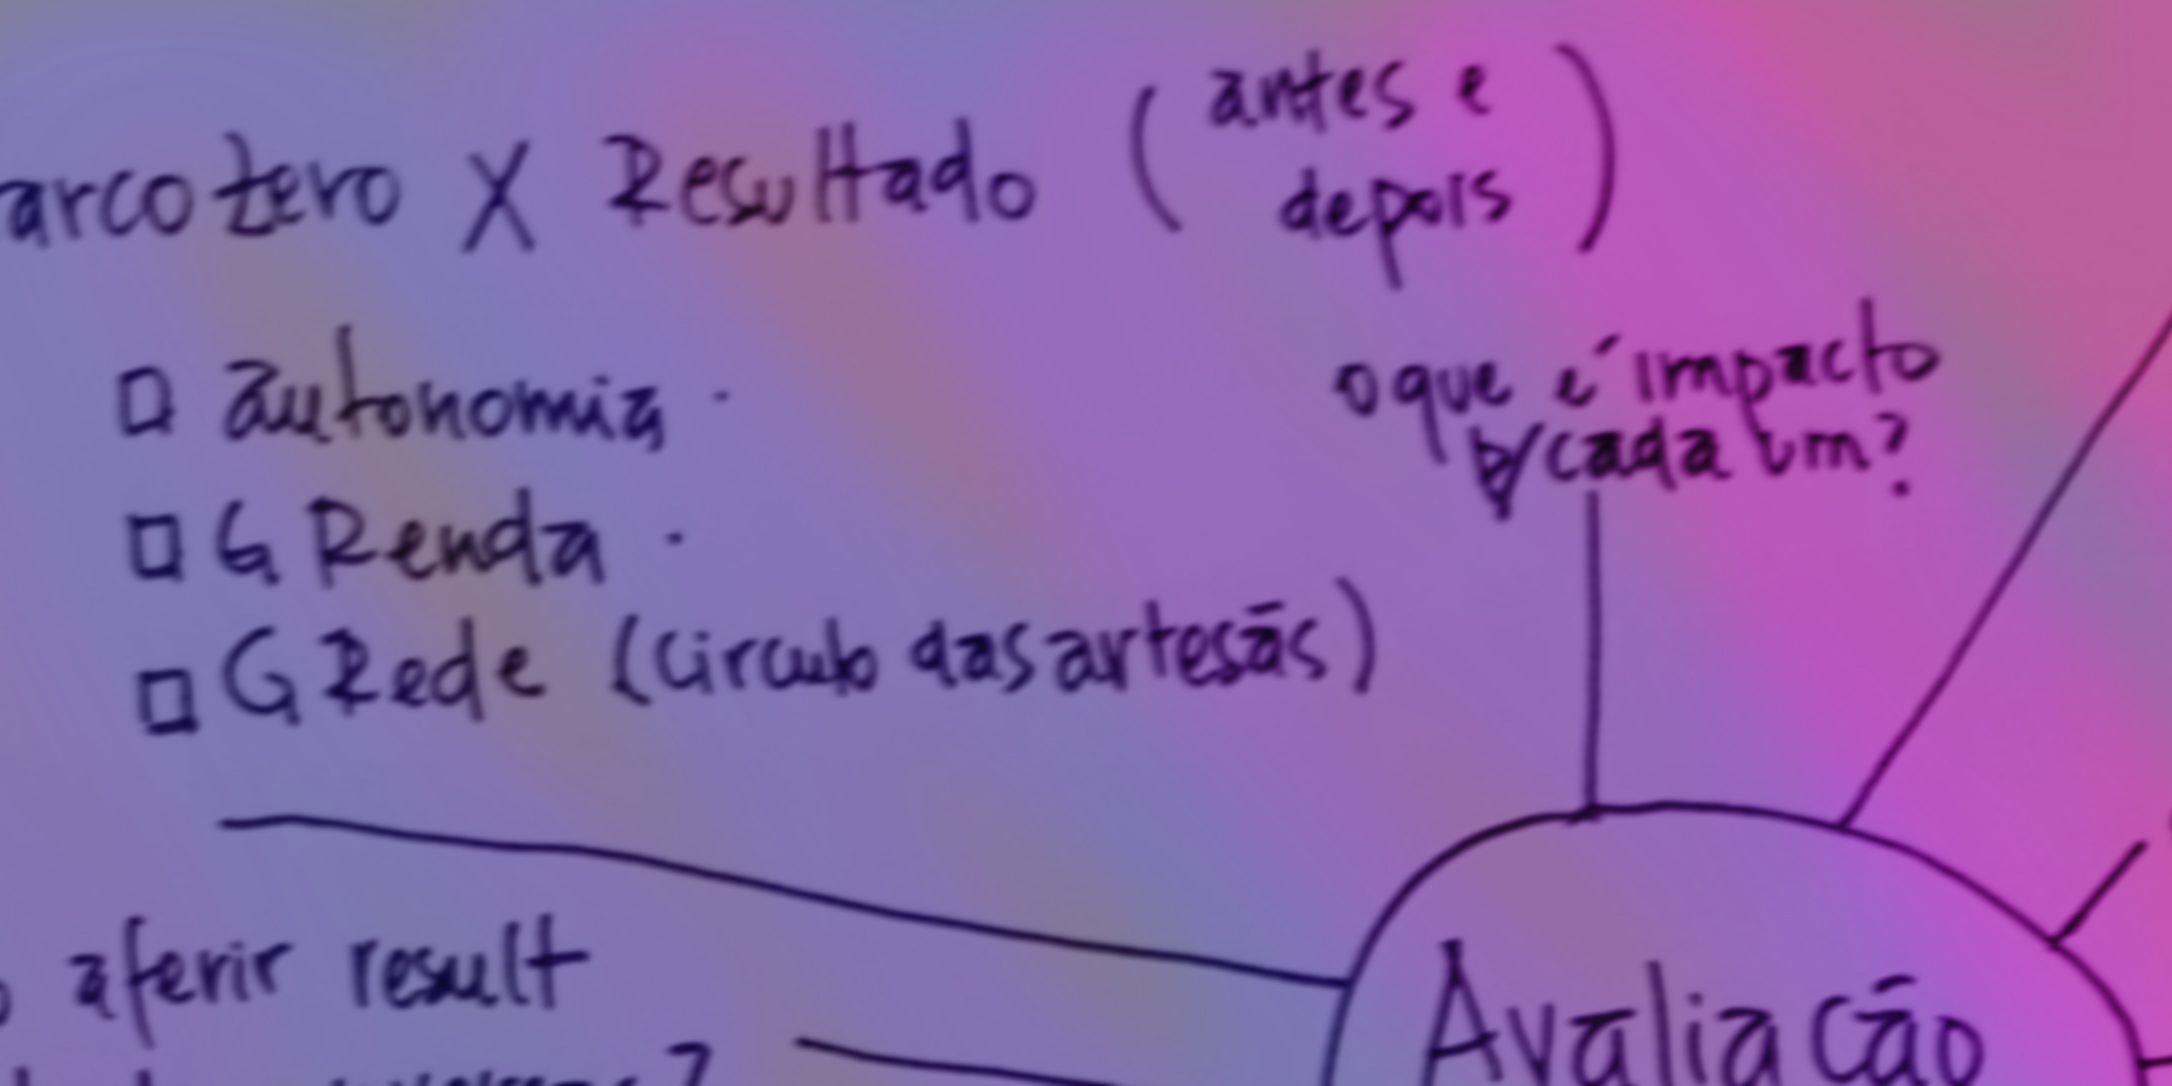 arco zero X Resultado (antes e
depois)
o que é impacto
p/ cada um?
autonomia.
G Renda.
G Rede (circulo das artesãs)
aferir result
?
Avaliação